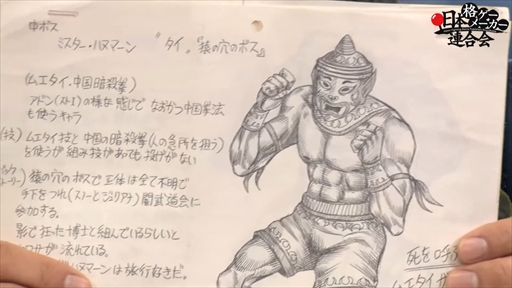 日本格ゲーメーカー連合会
中ボス
ミスター・ハヌマーン 〃タイ〃『猿の穴のボス』
(ムエタイ・中国暗殺拳)
アドン(ストⅠ)の様な感じで なおかつ中国拳法
も使うキャラ
技) ムエタイ技と中国の暗殺拳(人の急所を狙う)
を使うが組み技があっても投げがない
猿の穴のボスで正体は全て不明で
手下をつれ(ストーとジュリアナ)闘武道会に
参加する。
影で狂った博士と組んでいるらしいと
が流れている。
ハヌマーンは旅行好きだ。
死を呼
ムエタイ